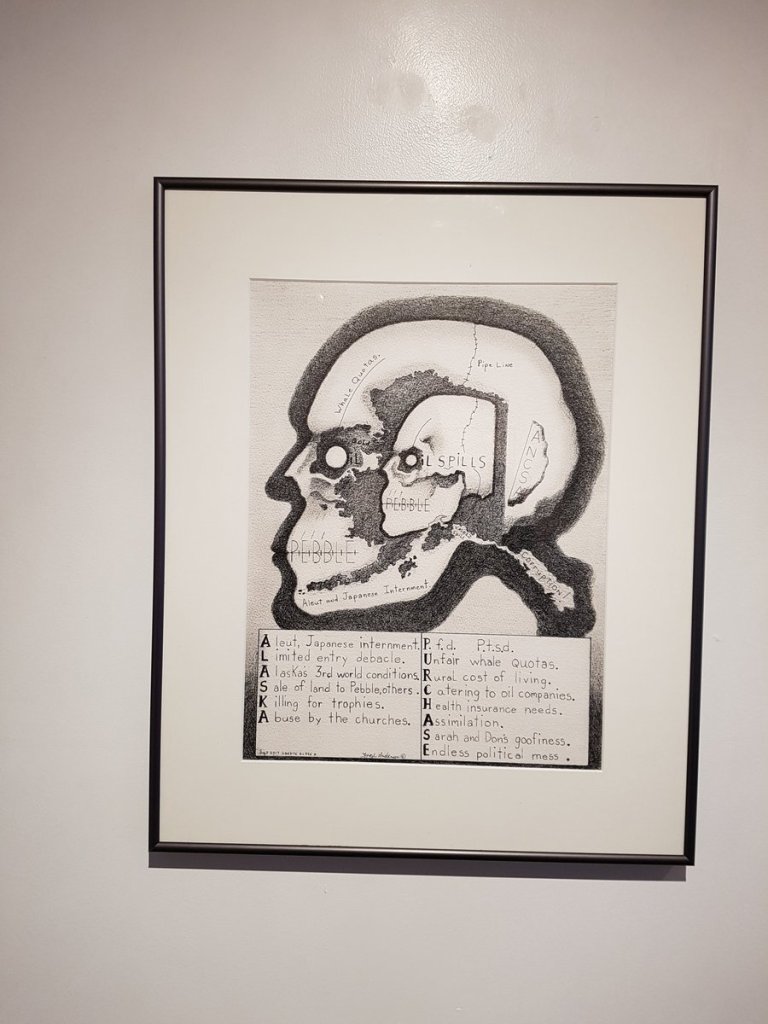 Whale Quotas.
Pipe Line
ANCS
OIL
OIL SPILLS
PEBBLE
PEBBLE
Corruption!
Aleut and Japanese Internment.
Aleut, Japanese internment.
Limited entry debacle.
Alaskas 3rd world conditions.
Sale of land to Pebble,others.
Killing for trophies.
Abuse by the churches.
P.f.d. P.t.s.d.
Unfair whale Quotas.
Rural cost of living.
Catering to oil companies.
Health insurance needs.
Assimilation.
Sarah and Don's goofiness.
Endless political mess.